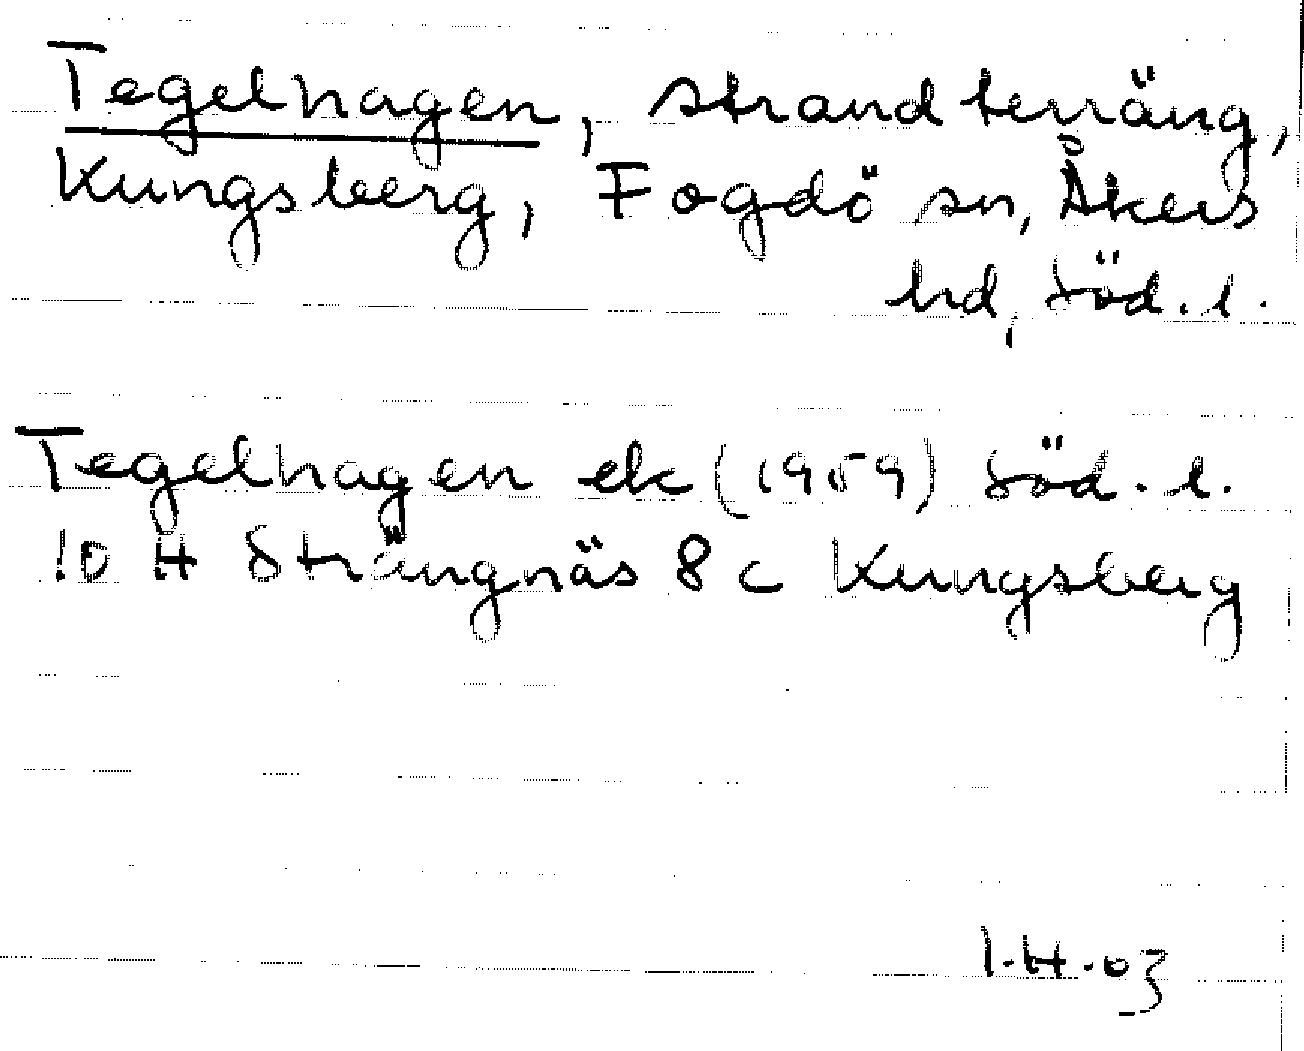 Tegelhagen, strandterräng,
Kungsberg, Fogdö sn, Åkers
hd, Söd. l.
Tegelhagen ek (1959) Söd. l.
10 H Strängnäs 8 c Kungsberg
I.H.03